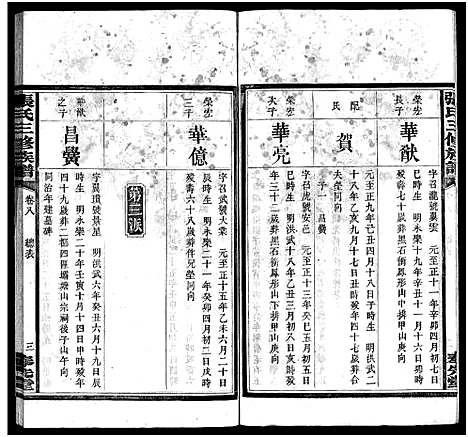 張氏三修族譜
榮宏
長子
華猷
字召龍號襄雲 元至正十一年辛卯四月初一日
巳時生 明永樂十九年辛丑十一月十六日卯時
歿壽七十一歲葬黑石衝鳳形山中排甲山庚向
配
賀
氏
元至正九年己丑四月十八日子時生 明洪武二
十八年乙亥九月十七日丑時歿年四十七歲葬與
夫塋同向
子一 昌黌
榮宏
次子
華亮
字召虎號安邑 元至正十三年癸巳五月初五日
巳時生 明洪武十八年乙丑三月初八日丑時歿
年三十三歲葬黑石衝鳳形山下排甲山庚向
榮宏
三子
華億
字召武號大業 元至正十五年乙未六月二十日
辰時生 明永樂二十一年癸卯四月初二日戌時
歿壽六十八歲葬伴兄塋同向
第三派
華猷
之子
昌黌
字翼瑣號景星 明洪武六年癸丑六月十九日辰
時生 明永樂二十年壬寅十月十四日申時歿年
四十九歲葬二都四區壩塘山宗祠後子山午向
同治年建墓碑
張氏三修族譜
卷八 總表
三
孝友堂